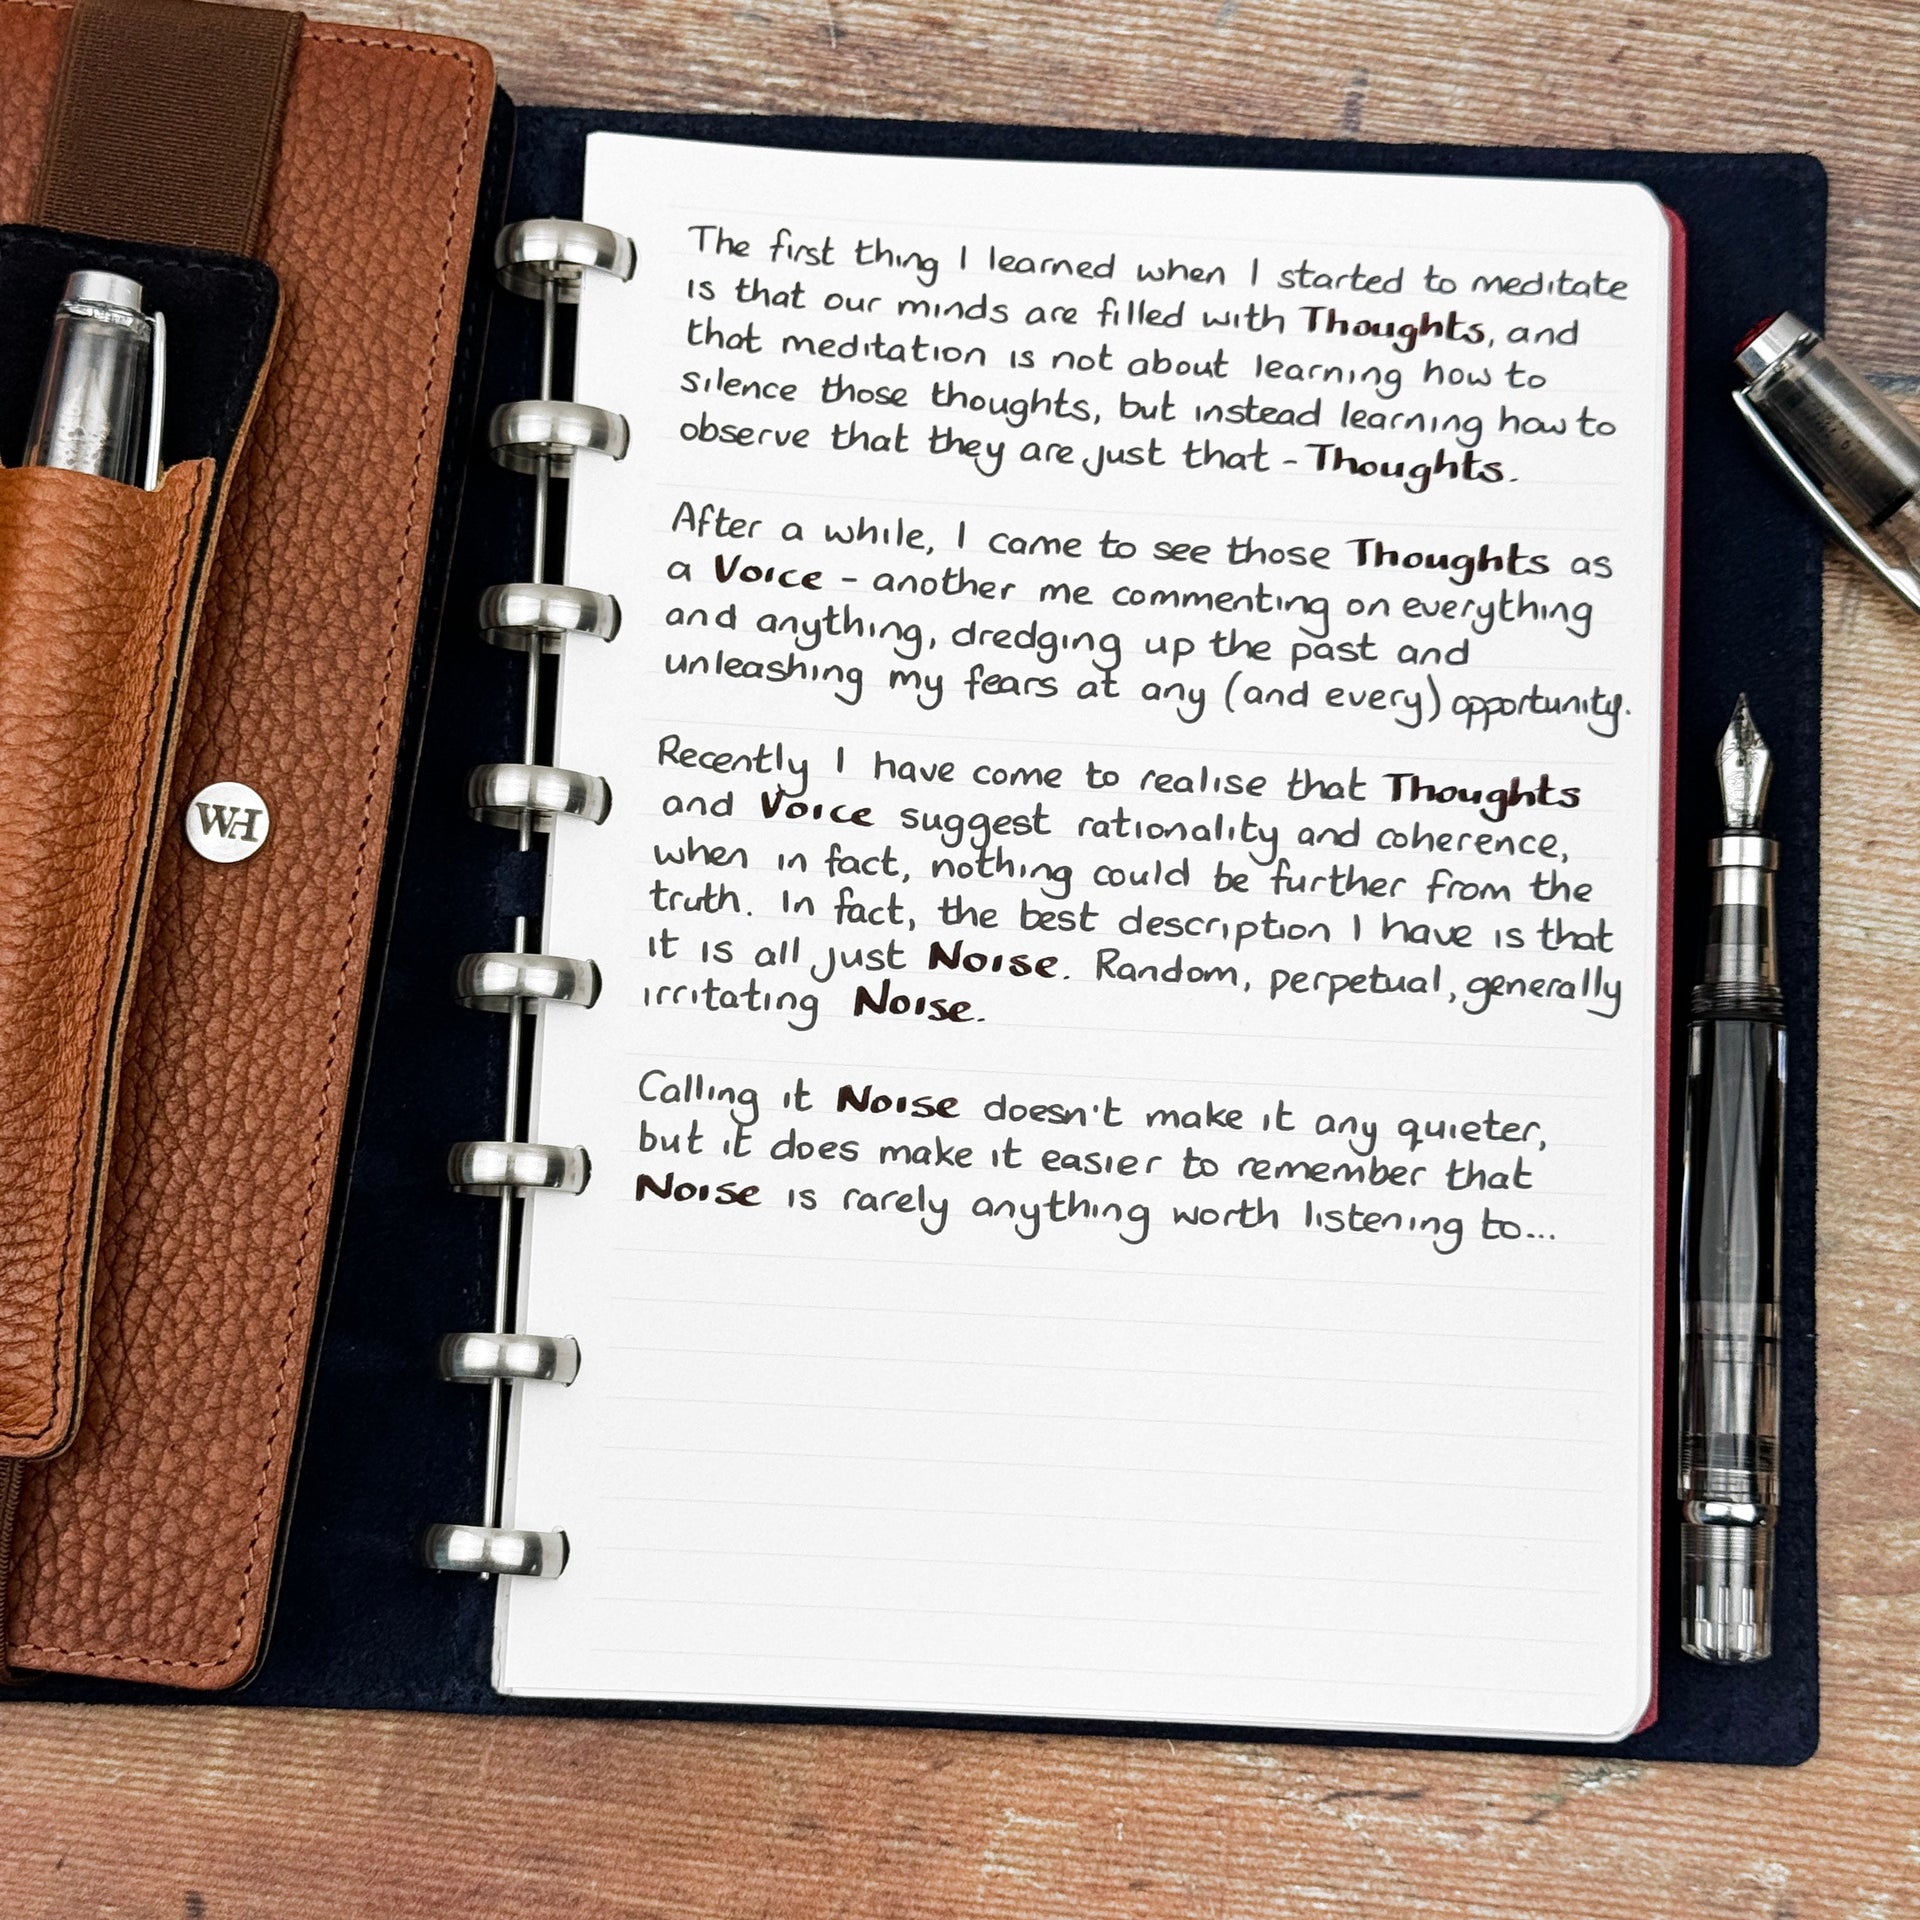 WH
The first thing I learned when I started to meditate
is that our minds are filled with Thoughts, and
that meditation is not about learning how to
silence those thoughts, but instead learning how to
observe that they are just that - Thoughts.
After a while, I came to see those Thoughts as
a Voice - another me commenting on everything
and anything, dredging up the past and
unleashing my fears at any (and every) opportunity.
Recently I have come to realise that Thoughts
and Voice suggest rationality and coherence,
when in fact, nothing could be further from the
truth. In fact, the best description I have is that
it is all just Noise. Random, perpetual, generally
irritating Noise.
Calling it Noise doesn't make it any quieter,
but it does make it easier to remember that
Noise is rarely anything worth listening to...